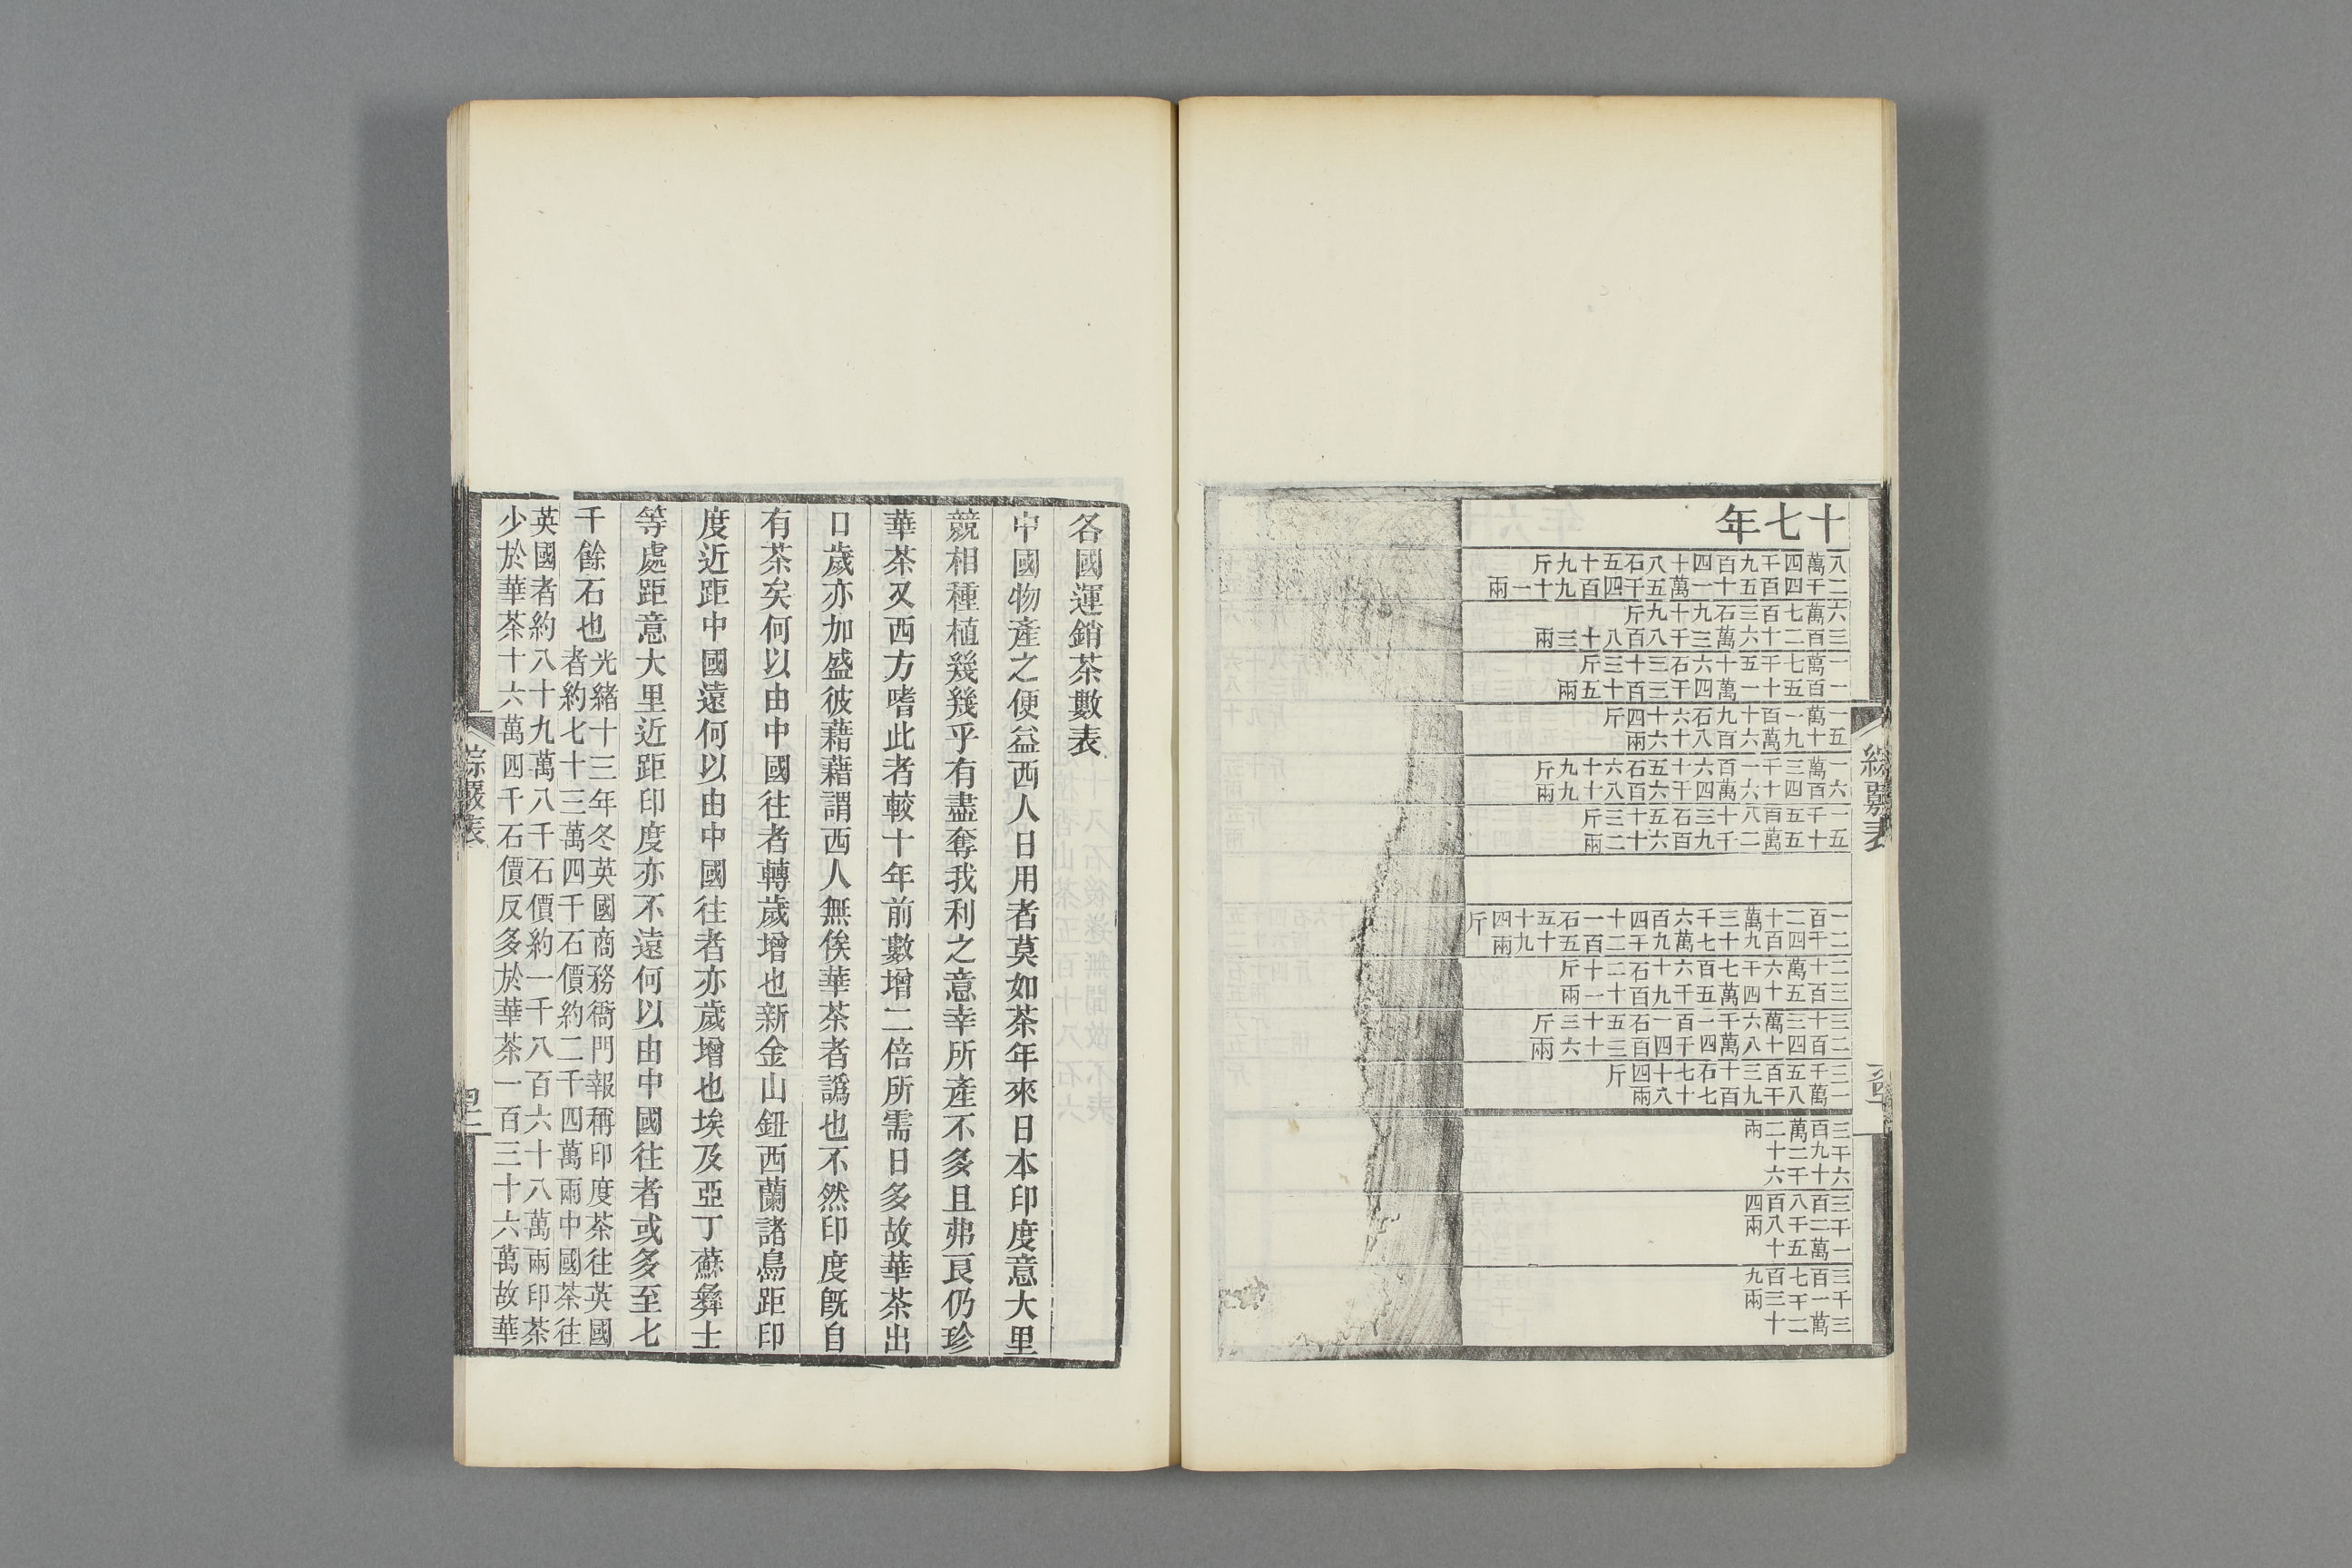 十七年
八萬四千九百四十八石五十九斤
二千四百五十一萬五千四百九十一兩
六萬七百三石九十九斤
三百二十六萬三千八百八十三兩
一萬七千五十六石三十三斤
一百五十一萬四千三百十五兩
一萬一百十九石六十四斤
五十九萬六百八十六兩
一萬三千一百六十五石六十九斤
六百四十六萬四千六百八十九兩
一千五百八十三石六十三斤
五十五萬二千九百五十二兩
一百二十萬三千六百四十一石五十四斤
二千四百九十七萬九千二百五十九兩
二十萬六千七百六十石二十斤
三百五十四萬五千九百十一兩
三十三萬六千一百一石五十三斤
二百四十八萬四千四百三十六兩
三千五百三十石七十四斤
一萬八千九百七十八兩
三千六
百九十
萬二千
二十六
兩
三千一
百二萬
八千五
百八十
四兩
三千三
百一萬
七千二
百三十
九兩
各國運銷茶數表
中國物產之便益西人日用者莫如茶年來日本印度意大里
競相種植幾幾乎有盡奪我利之意幸所產不多且弗良仍珍
華茶又西方嗜此者較十年前數增二倍所需日多故華茶出
口歲亦加盛彼藉藉謂西人無俟華茶者譌也不然印度旣自
有茶矣何以由中國往者轉歲增也新金山鈕西蘭諸島距印
度近距中國遠何以由中國往者亦歲增也埃及亞丁蘇彝士
等處距意大里近距印度亦不遠何以由中國往者或多至七
千餘石也
光緒十三年冬英國商務衙門報稱印度茶往英國
者約七十三萬四千石價約二千四萬兩中國茶往
英國者約八十九萬八千石價約一千八百六十八萬兩印茶
少於華茶十六萬四千石價反多於華茶一百三十六萬故華
綜覈表